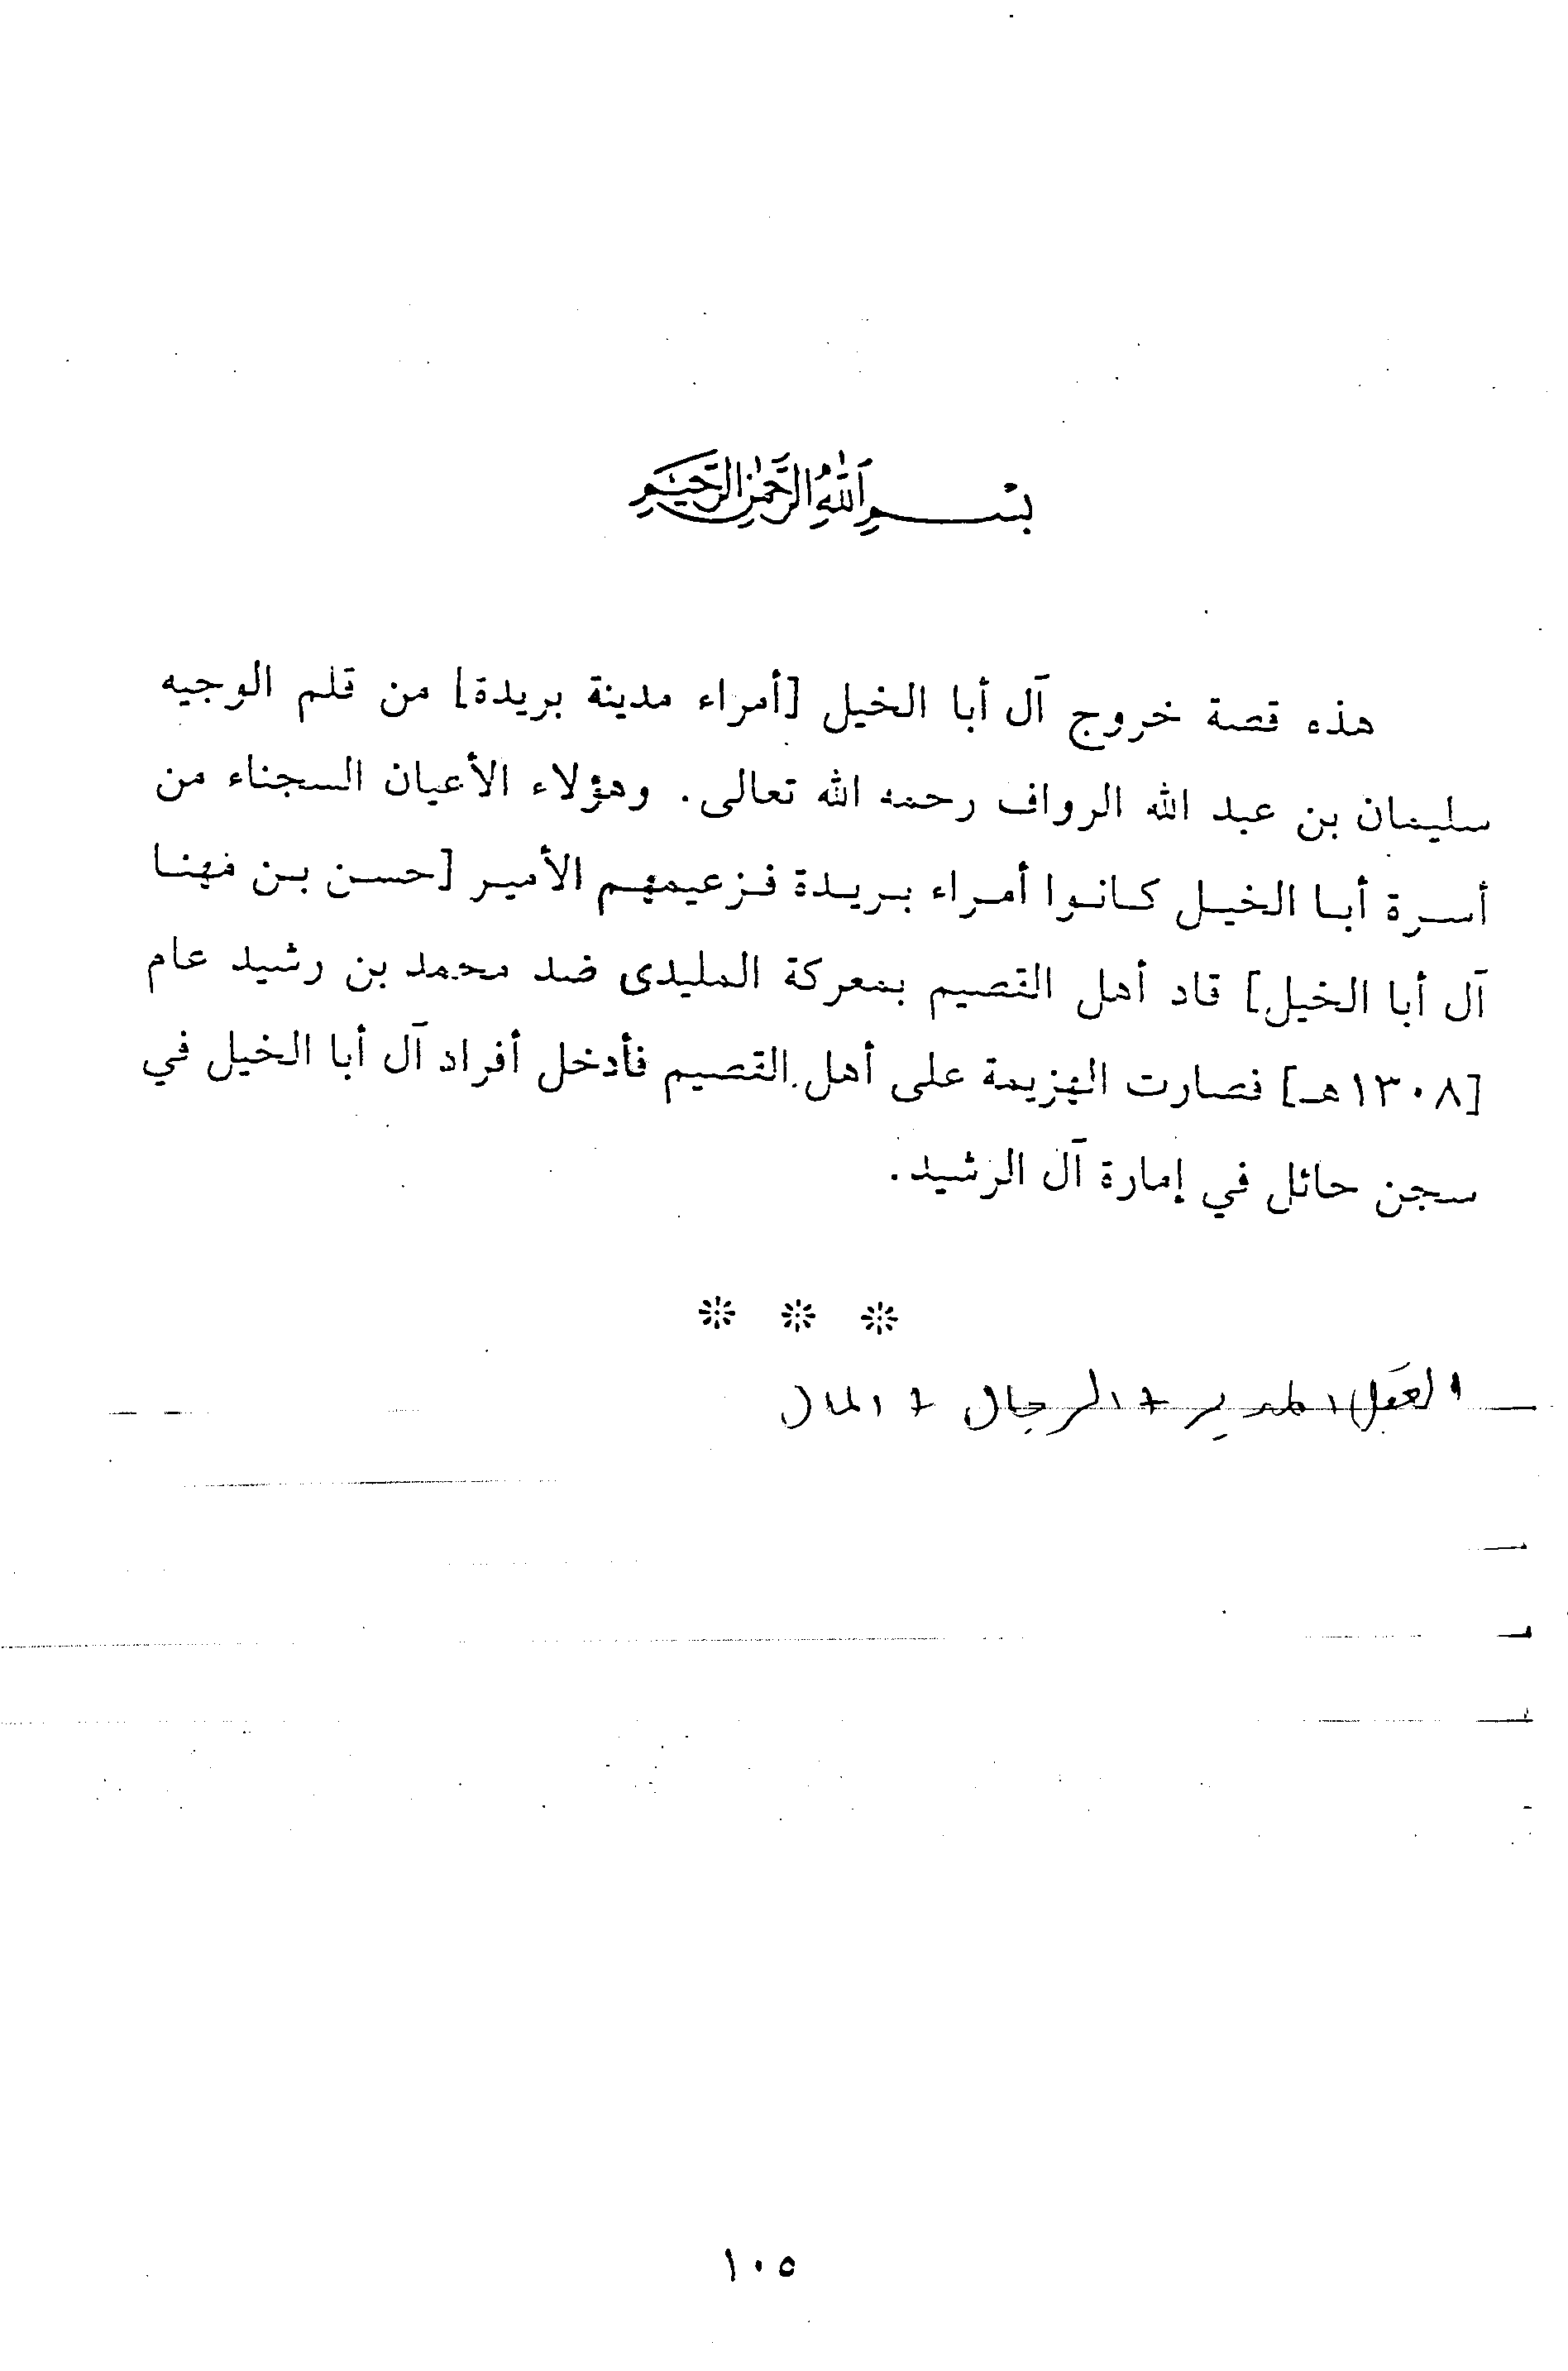 بسم الله الرحمن الرحيم
هذه قصة خروج آل أبا الخيل [أمراء مدينة بريدة] من قلم الوجيه
سليمان بن عبد الله الرواف رحمه الله تعالى. وهؤلاء الأعيان السجناء من
أسرة أبا الخيل كانوا أمراء بريدة فزعيمهم الأمير [حسن بن مهنا
آل أبا الخيل] قاد أهل القصيم بمعركة المليدى ضد محمد بن رشيد عام
[١٣٠٨هـ] فصارت الهزيمة على أهل القصيم فأدخل أفراد آل أبا الخيل في
سجن حائل في إمارة آل الرشيد.
العقل المدبر + الرجال + المال
١٠٥